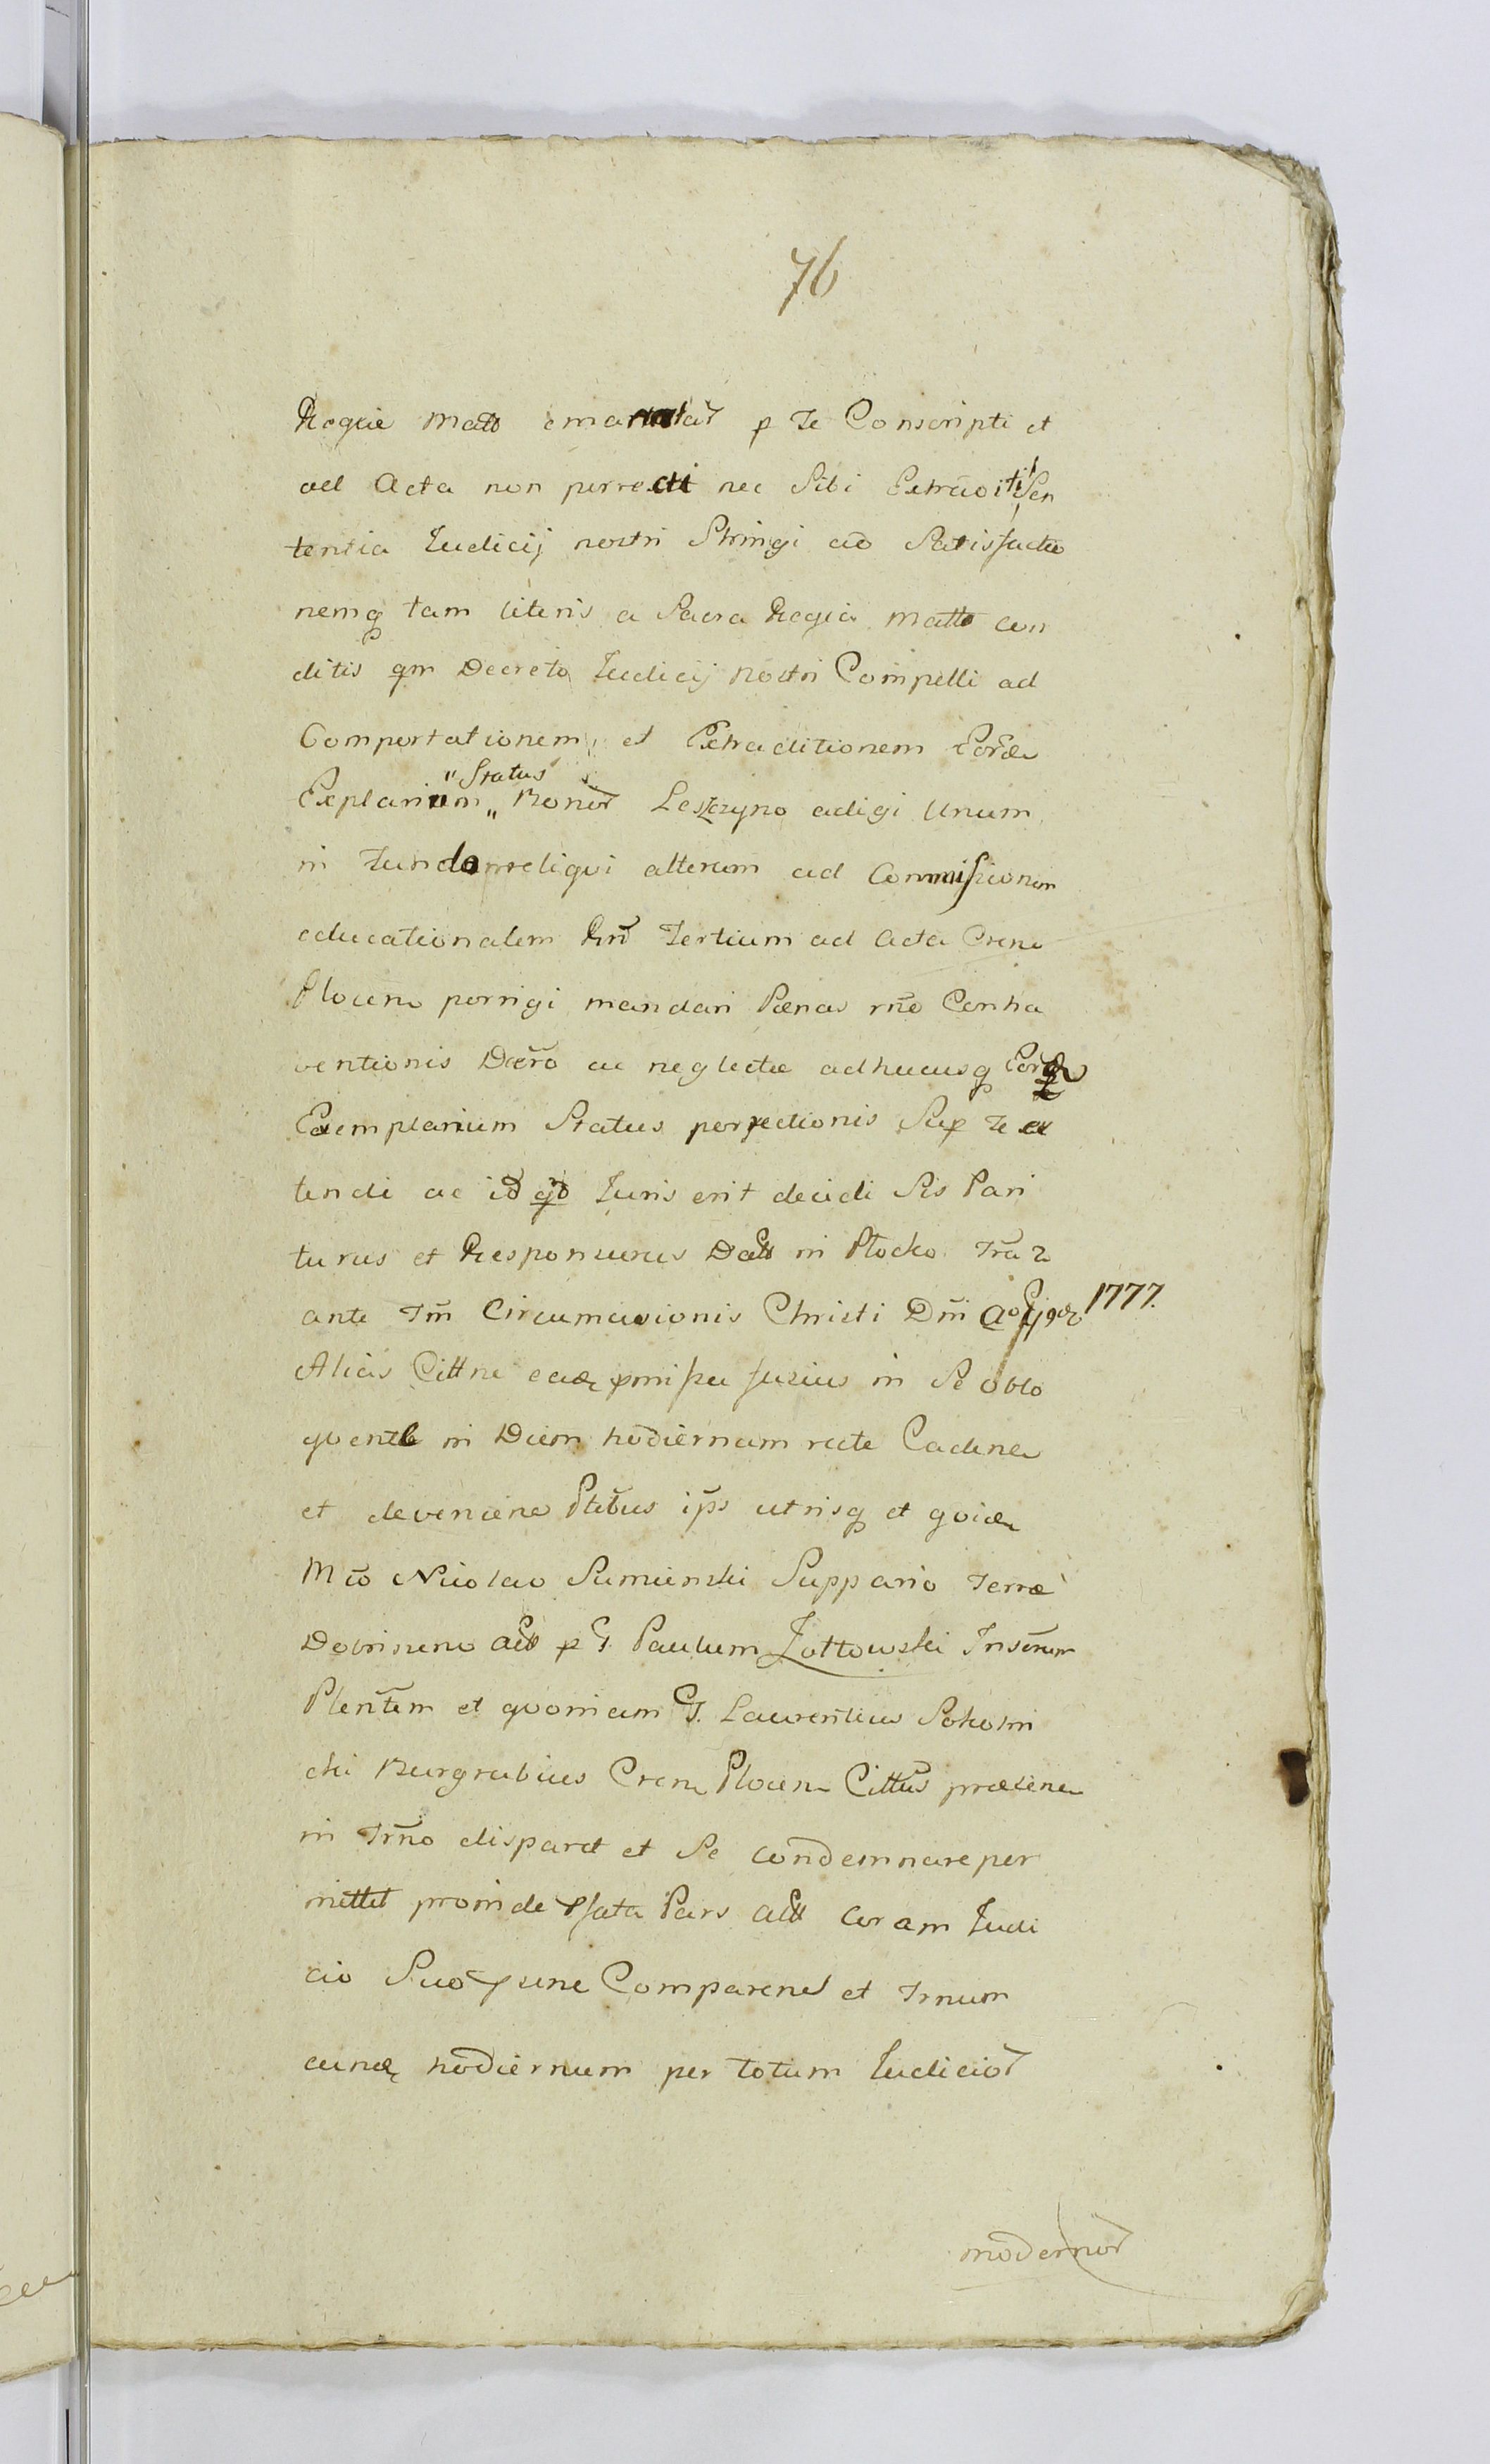 76
Regiæ Matt emanatar̃ p Te Conscripti et
ad Acta non perrecti nec Sibi Extraditi Sen
tentia Iudicij nostri Stringi ad Satisfactio
nemq tam literis a Sacra Regia Matte con
ditis qm Decreto Iudicij nostri Compelli ad
Comportationem et Extraditionem
Explarium "Status" Bonor̃ Leszczyno adigi Unum
in Fundo reliqui alterum ad Commissionem
educationalem Rni Tertium ad Acta Cren
Plocen porrigi mandari Pænas rñe Contra
ventionis Decro ac neglectæ adhucusq
Exemplarium Status porrectionis Sup Te ex
tendi ac id qd Iuris erit decidi Sis Pari
turus et Responsurus Datt in Płocko Fra 2
ante Fm Circumcisionis Christi Dni Ao 1777.
Alias Cittne eadq pmissa fusius in Se oblo
quente in Diem hodiernam recte Caden
et devenien Ptibus ips utrisq et quidem
Mco Nicolao Sumienski Suppario Terræ
Dobrinen Act p G. Paulum Zottowski
Plentem et quoniam G. Laurentius Sokolni
cki Burgrabius Cren Plocen Cittus præsen
in Trno disparet et Se condemnare per
mittit proinde Pfata Pars Act coram Iudi
cio Suo psene Comparens et Trnum
eundq hodiernum per totum Iudicior̃
modernor̃